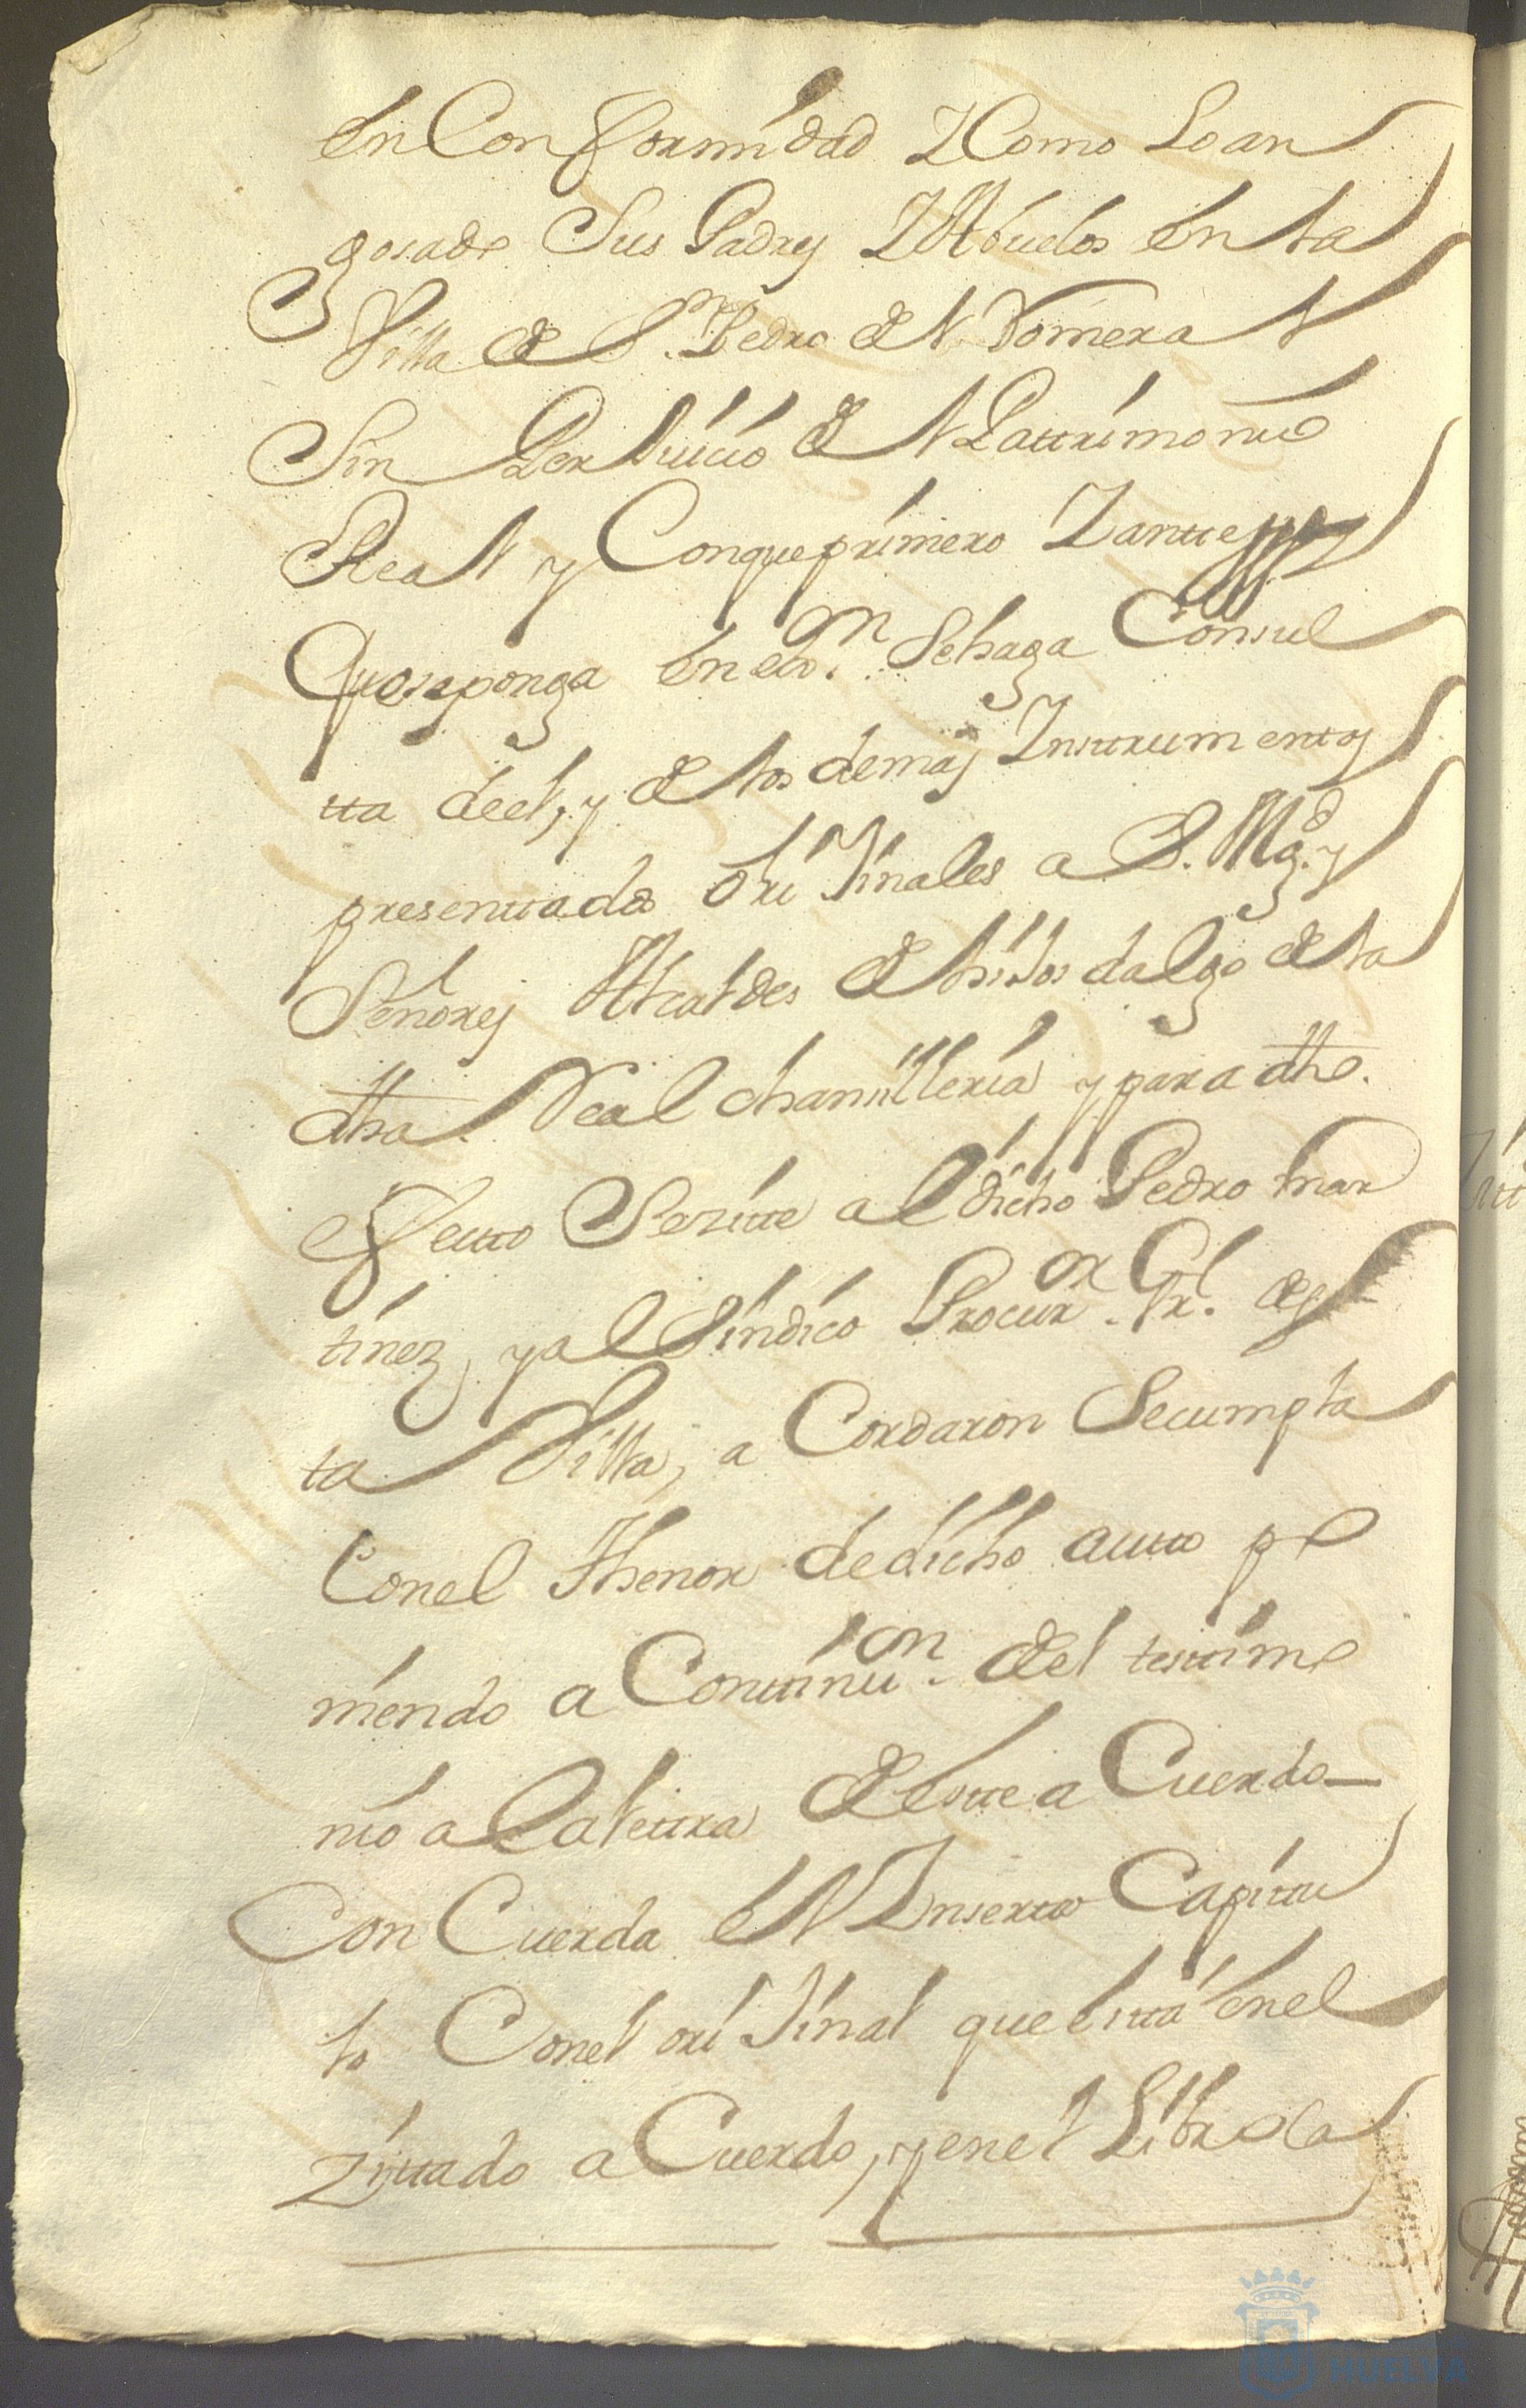 en Conformidad Y Como Loan
gosado Sus Padres Y Abuelos en la
Villa de S.n Pedro del Romeral
Sin Perjuicio del Patrimonio
Real y Conqueprimero Y antes
Queseponga en ex.on Sehaga Consul
ta deel, y de los demas Instrumentos
presentados orijinales a S. Mag.d y
Señores Alcaldes de hijos dalgo de la
dha Real chansilleria y para dho.
efecto Sezite al dicho Pedro mar
tinez, y al Sindico Procur.or Gr.l des
ta Villa, a Cordaron Secumpla
Conel Thenor dedicho auto po
niendo a Continu.on del testimo
nio a la letra deeste a Cuerdo—
Con Cuerda el Inserto Capitu
lo Conel orijinal que esta enel
Zittado a Cuerdo, y enel Libro
HUELVA